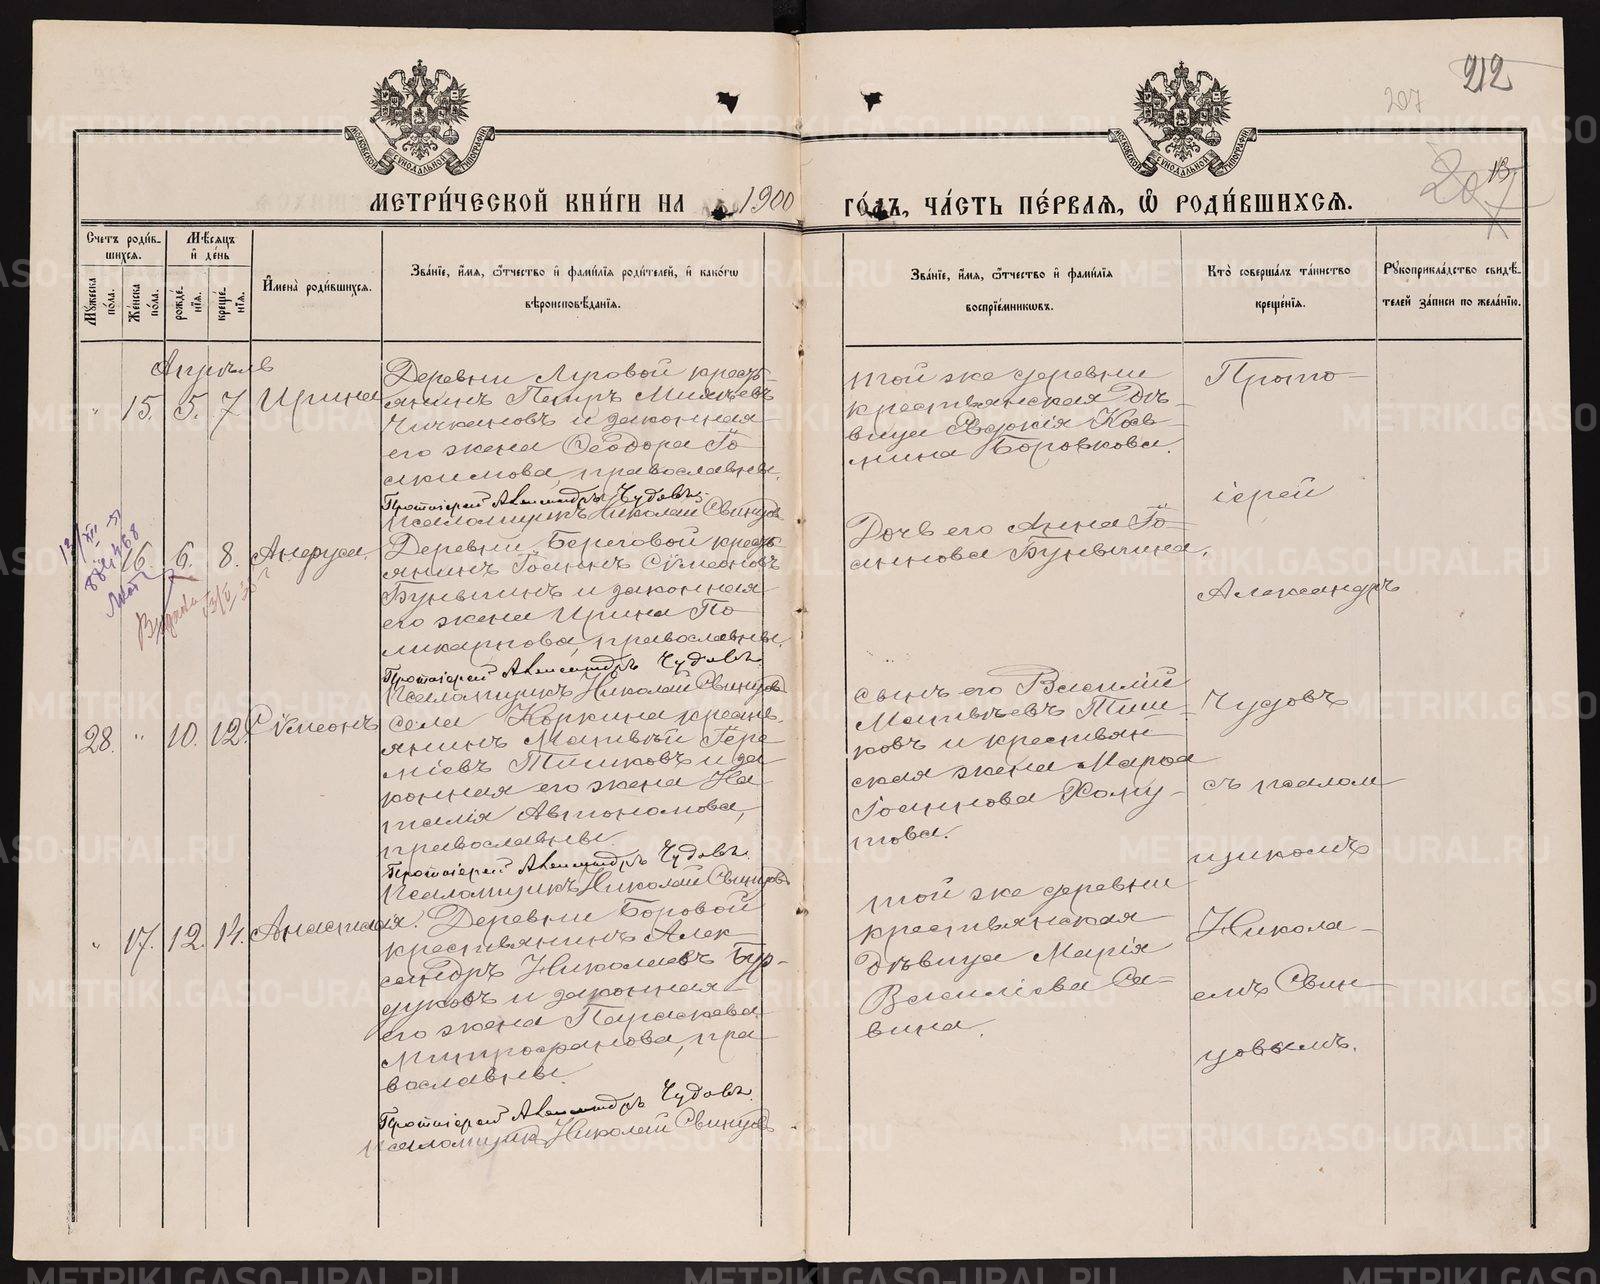 212
207
МЕТРИ́ЧЕСКОЙ КНИ́ГИ НА 1900 ГО́ДЪ, ЧА́СТЬ ПЕ́РВАѦ, Ѿ РОДИ́ВШИХСѦ.
Счетъ роди́в-
шихся.
Му́жеска по́ла.
Же́нска по́ла.
Мѣ́сяцъ и де́нь
рожде́-нія.
креще́-нія.
Имена̀ роди́вшихся.
Зва́ніе, и́мя, ѻ҆́тчество и фами́лія роди́телей, и како́гѡ
вѣроисповѣ́данія.
Зва́ніе, и́мя, ѻ҆́тчество и фами́лія
воспріе́мниковъ.
Кто̀ соверша́лъ та́инство
креще́нія.
Рукоприкла́дство свидѣ́-
телей за́писи по жела́нію.
Апрѣль
" 15. 5. 7 Ирина
Деревни Луговой кресть-
янинъ Петръ Матвѣевъ
Чичкановъ и законная
его жена Ѳеодора Іо-
акимова, православные.
Протоіерей Александръ Чудовъ.
Псаломщикъ Николай Свинцовъ
той же деревни
крестьянская дѣ-
вица Евдокія Коз-
мина Боровкова.
16. 6. 8. Анфуса.
Деревни Береговой кресть
янинъ Іоаннъ Сѵмеоновъ
Буньшинъ и законная
его жена Ирина По
ликарпова, православные.
Протоіерей Александръ Чудовъ.
Псаломщикъ Николай Свинцовъ
Дочь его Анна Іо-
аннова Буньшина.
28. " 10. 12. Сѵмеонъ
села Коркина кресть-
янинъ Матвѣй Іере-
міевъ Тишковъ и за-
конная его жена На-
талія Автономова,
православные.
Протоіерей Александръ Чудовъ.
Псаломщикъ Николай Свинцовъ
сынъ его Василій
Матвѣевъ Тиш-
ковъ и крестьян-
ская жена Марѳа
Іоаннова Хому-
това.
" 17. 12. 14. Анастасія.
Деревни Боровой
крестьянинъ Алек-
сандръ Николаевъ Бур-
дуковъ и законная
его жена Параскева
Митрофанова, пра
вославные.
Протоіерей Александръ Чудовъ.
Псаломщикъ Николай Свинцовъ
той же деревни
крестьянская
дѣвица Марія
Василіева Са-
вина.
Прото-
іерей
Александръ
Чудовъ
съ псалом
щикомъ
Никола-
емъ Свин
цовымъ.